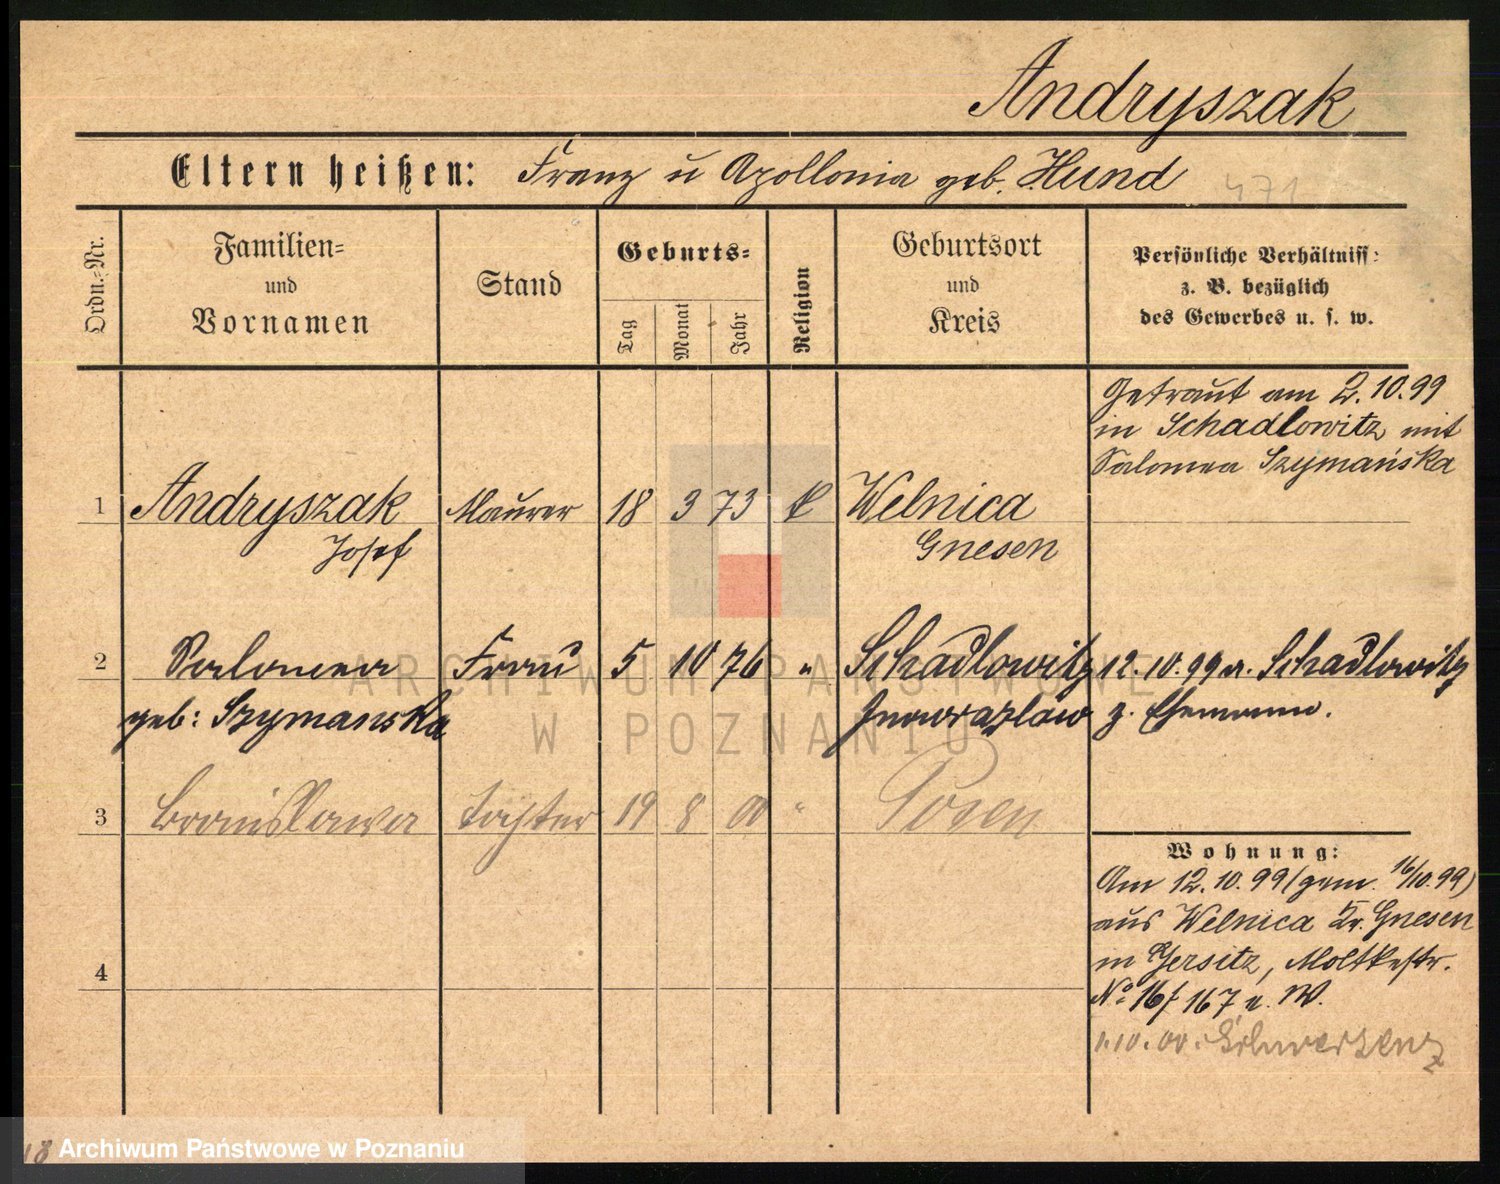 Andryszak
Eltern heißen: Franz u Apollonia geb. Hund 471
Ordn.-Nr.
Familien-
und
Vornamen
Stand
Geburts-
Tag
Monat
Jahr
Religion
Geburtsort
und
Kreis
Persönliche Verhältniss-
z. B. bezüglich
des Gewerbes u. s. w.
Getraut am 2.10.99
in Schadlowitz mit
Salomea Szymańska
1 Andryszak Maurer 18 3 73 k Welnica
Josef Gnesen
2 Salomea Frau 5 10 76 " Schadlowitz 12.10.99 a. Schadlowitz
geb: Szymanska Inowrazlaw z. Ehemann.
3 Bronislawa Tochter 19 8 00 " Posen
Wohnung:
Am 12.10.99 (gem. 16/10.99)
aus Welnica Kr. Gnesen
in Jersitz, Moltkestr.
4
No 16/167 n. W.
1.10.00. Schwersenz
18
Archiwum Państwowe w Poznaniu
ARCHIWUM PAŃSTWOWE
W POZNANIU